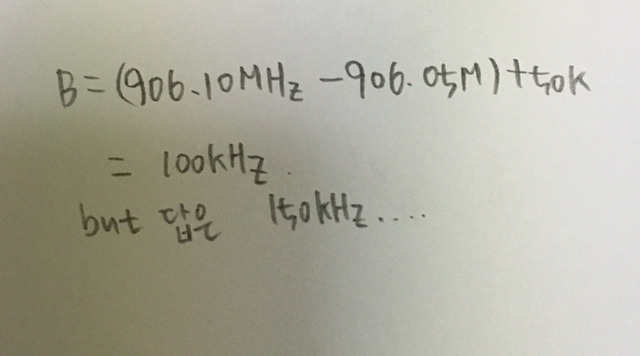 B=(906.10MHz -906.05M)+50k
= 100kHz.
but 답은 150kHz....